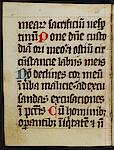 mearū sacrificiū vesp
tinū Pone dñe custo
diā ori meo et ostiū cir
cūstancie labiis meis
Nō declines cor meū
in uerba malicie ad excu
sandas excusationes
ī pctīs Cū hominib
operantib iīqitatē et